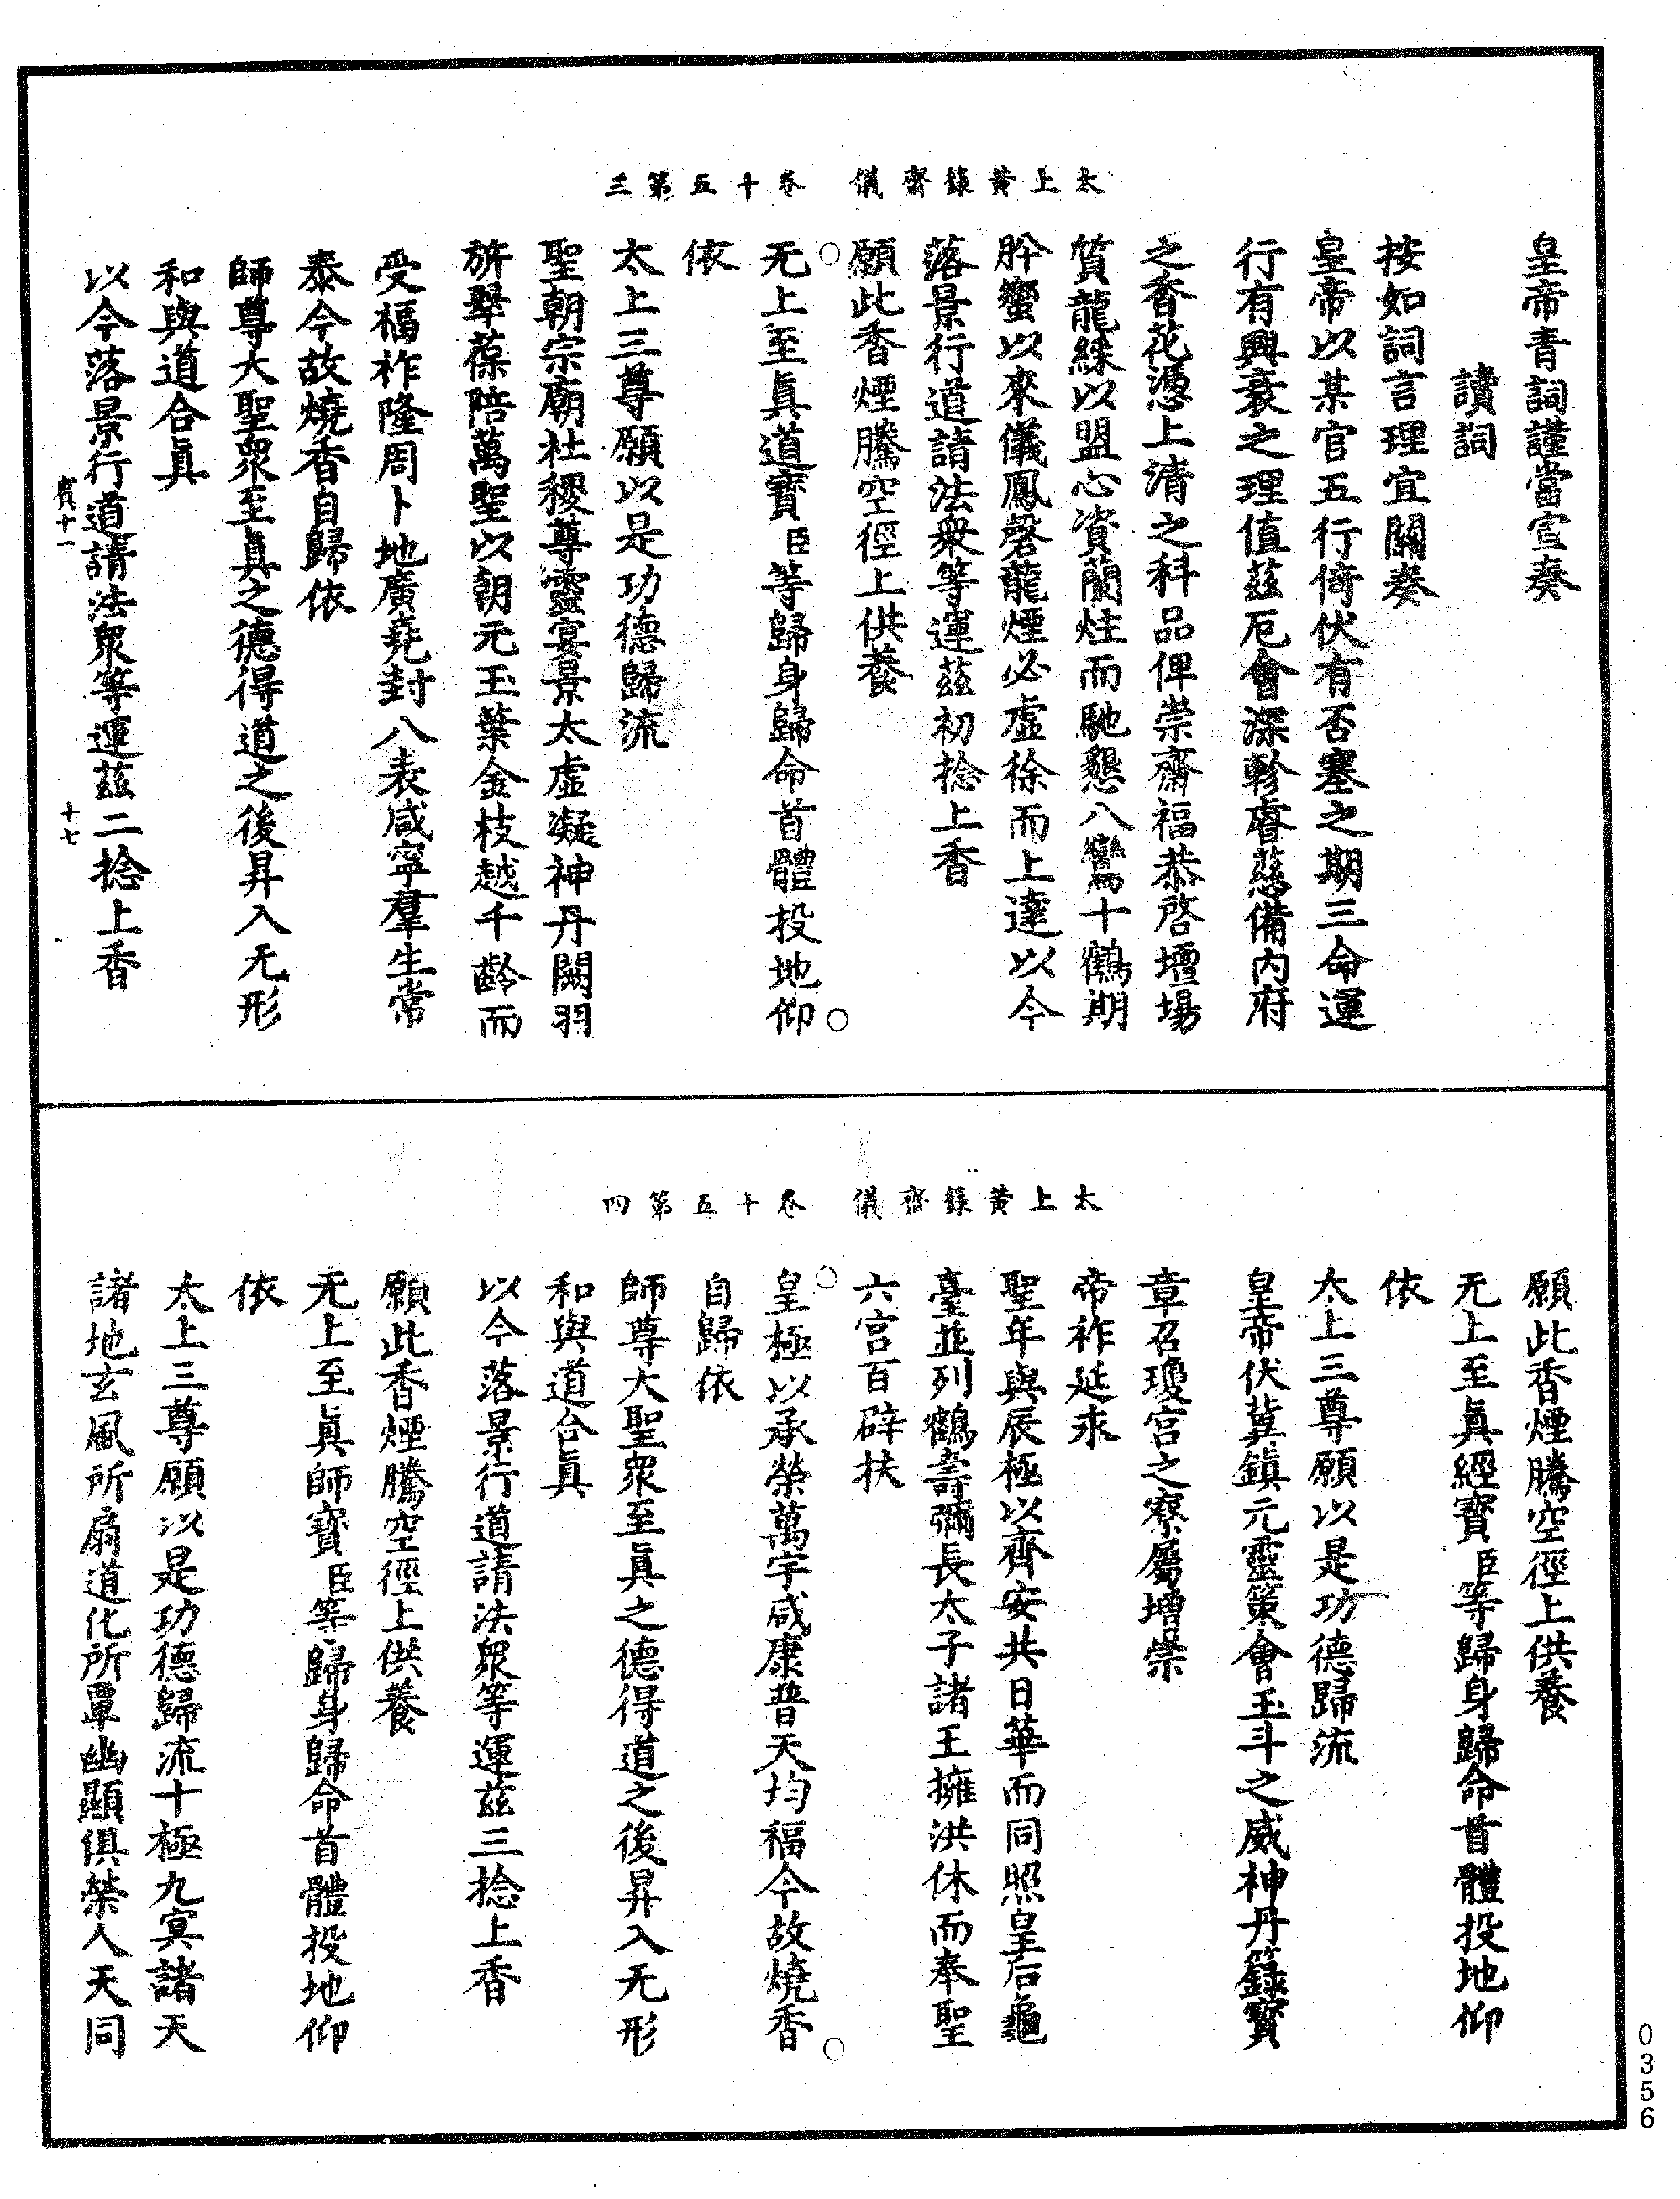 太上黃籙齋儀　卷十五第三
皇帝青詞謹當宣奏
讀詞
按如詞言理宜關奏
皇帝以某官五行倚伏有否塞之期三命運
行有興衰之理值茲厄會深軫睿慈備內府
之香花憑上清之科品俾崇齋福恭啓壇場
質龍綵以盟心資蘭炷而馳懇八鸞十鶴期
肸蠁以來儀鳳磬龍煙必虛徐而上達以今
落景行道請法衆等運茲初捻上香
願此香煙騰空徑上供養
无上至眞道寶臣等歸身歸命首體投地仰
依
太上三尊願以是功德歸流
聖朝宗廟社稷尊靈宴景太虛凝神丹闕羽
旂翠葆陪萬聖以朝元玉葉金枝越千齡而
受福祚隆周卜地廣堯封八表咸寧羣生常
泰今故燒香自歸依
師尊大聖眾至眞之德得道之後昇入无形
和與道合眞
以今落景行道請法眾等運茲二捻上香
賓十一
十七
太上黃籙齋儀　卷十五第四
願此香煙騰空徑上供養
无上至眞經寶臣等歸身歸命首體投地仰
依
太上三尊願以是功德歸流
皇帝伏冀鎮元靈策會玉斗之威神丹籙寶
章召瓊宮之寮屬增崇
帝祚延永
聖年與辰極以齊安共日華而同照皇后龜
臺並列鶴壽彌長太子諸王擁洪休而奉聖
六宮百辟扶
皇極以承榮萬宇咸康普天均福今故燒香
自歸依
師尊大聖眾至眞之德得道之後昇入无形
和與道合眞
以今落景行道請法眾等運茲三捻上香
願此香煙騰空徑上供養
无上至眞師寶臣等歸身歸命首體投地仰
依
太上三尊願以是功德歸流十極九冥諸天
諸地玄風所扇道化所覃幽顯俱榮人天同
0356